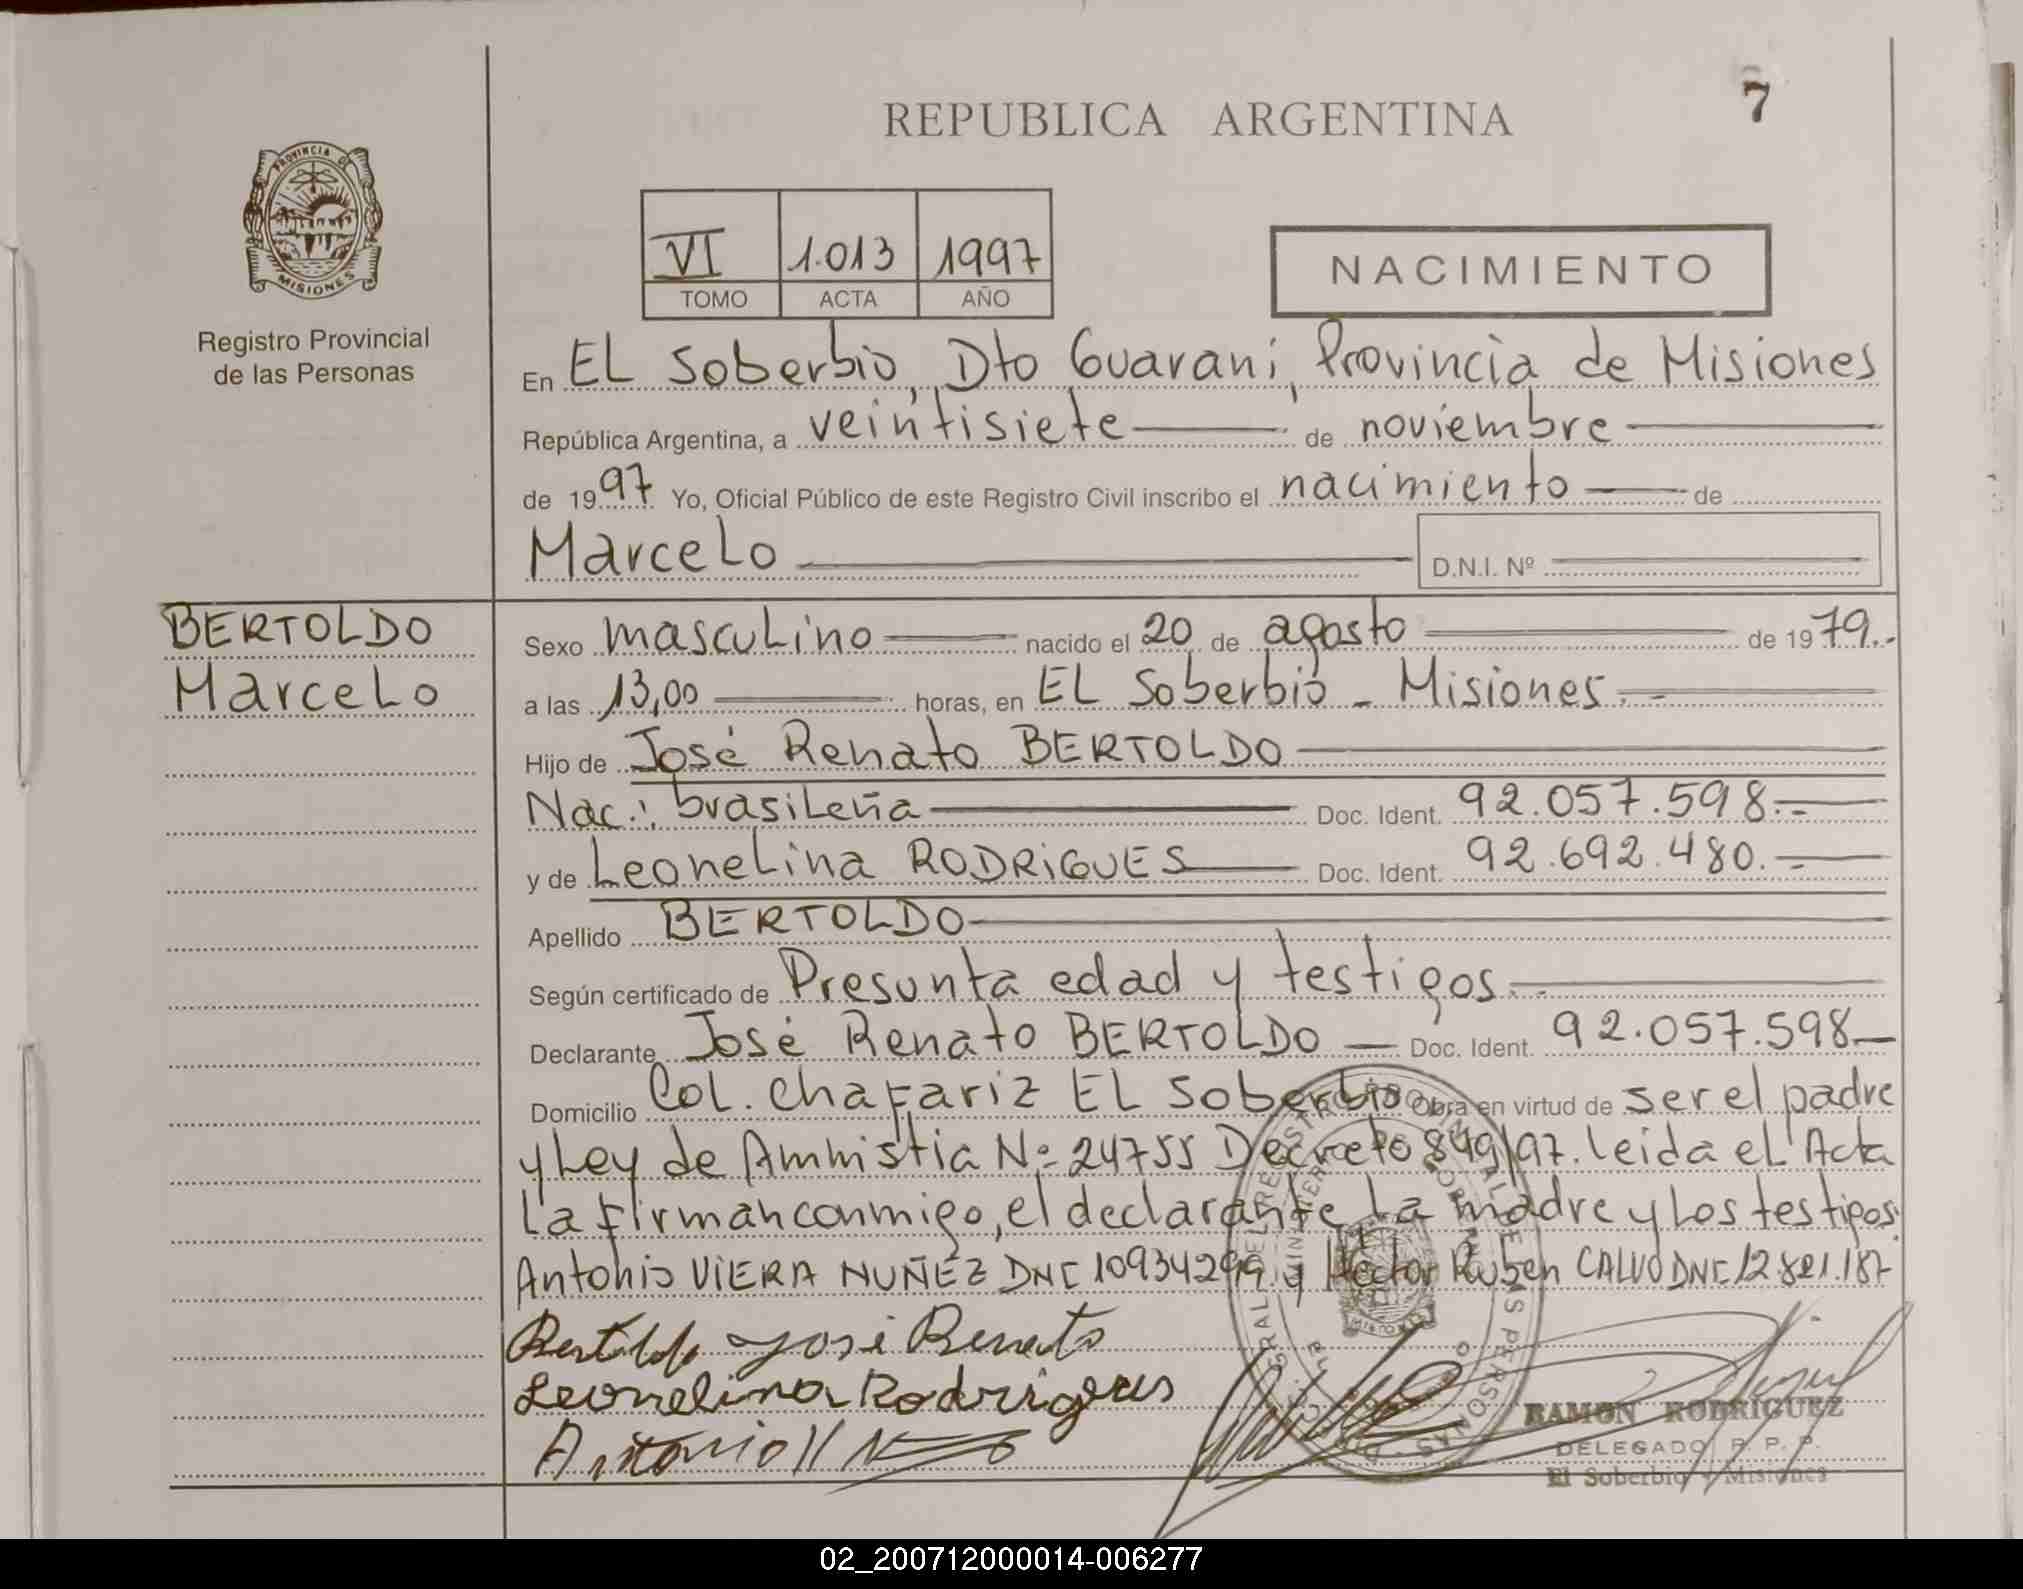 REPUBLICA ARGENTINA
7
PROVINCIA DE
MISIONES
Registro Provincial
de las Personas
VI 1.013 1997
TOMO ACTA AÑO
NACIMIENTO
En EL Soberbio, Dto Guaraní, Provincia de Misiones
República Argentina, a veintisiete de noviembre
de 1997 Yo, Oficial Público de este Registro Civil inscribo el nacimiento de
Marcelo
D.N.I. Nº
BERTOLDO
Marcelo
Sexo masculino nacido el 20 de agosto de 1979.-
a las 13,00 horas, en EL Soberbio - Misiones.-
Hijo de José Renato BERTOLDO
Nac.: brasileña Doc. Ident. 92.057.598.-
y de Leonelina RODRIGUES Doc. Ident. 92.692.480.-
Apellido BERTOLDO
Según certificado de Presunta edad y testigos.-
Declarante José Renato BERTOLDO Doc. Ident. 92.057.598
Domicilio Col. Chafariz EL Soberbio Obra en virtud de ser el padre
y Ley de Amnistia Nº 24755 Decreto 849/97. Leida el Acta
La firman conmigo, el declarante, La madre y Los testigos:
Antonio VIERA NUÑEZ DNI 10934299 y Hector Ruben CALVO DNI 12.821.187
Bertoldo José Renato
Leonelina Rodrigues
Antonio V N
RAMON RODRIGUEZ
DELEGADO R. P. P.
El Soberbio - Misiones
02_200712000014-006277